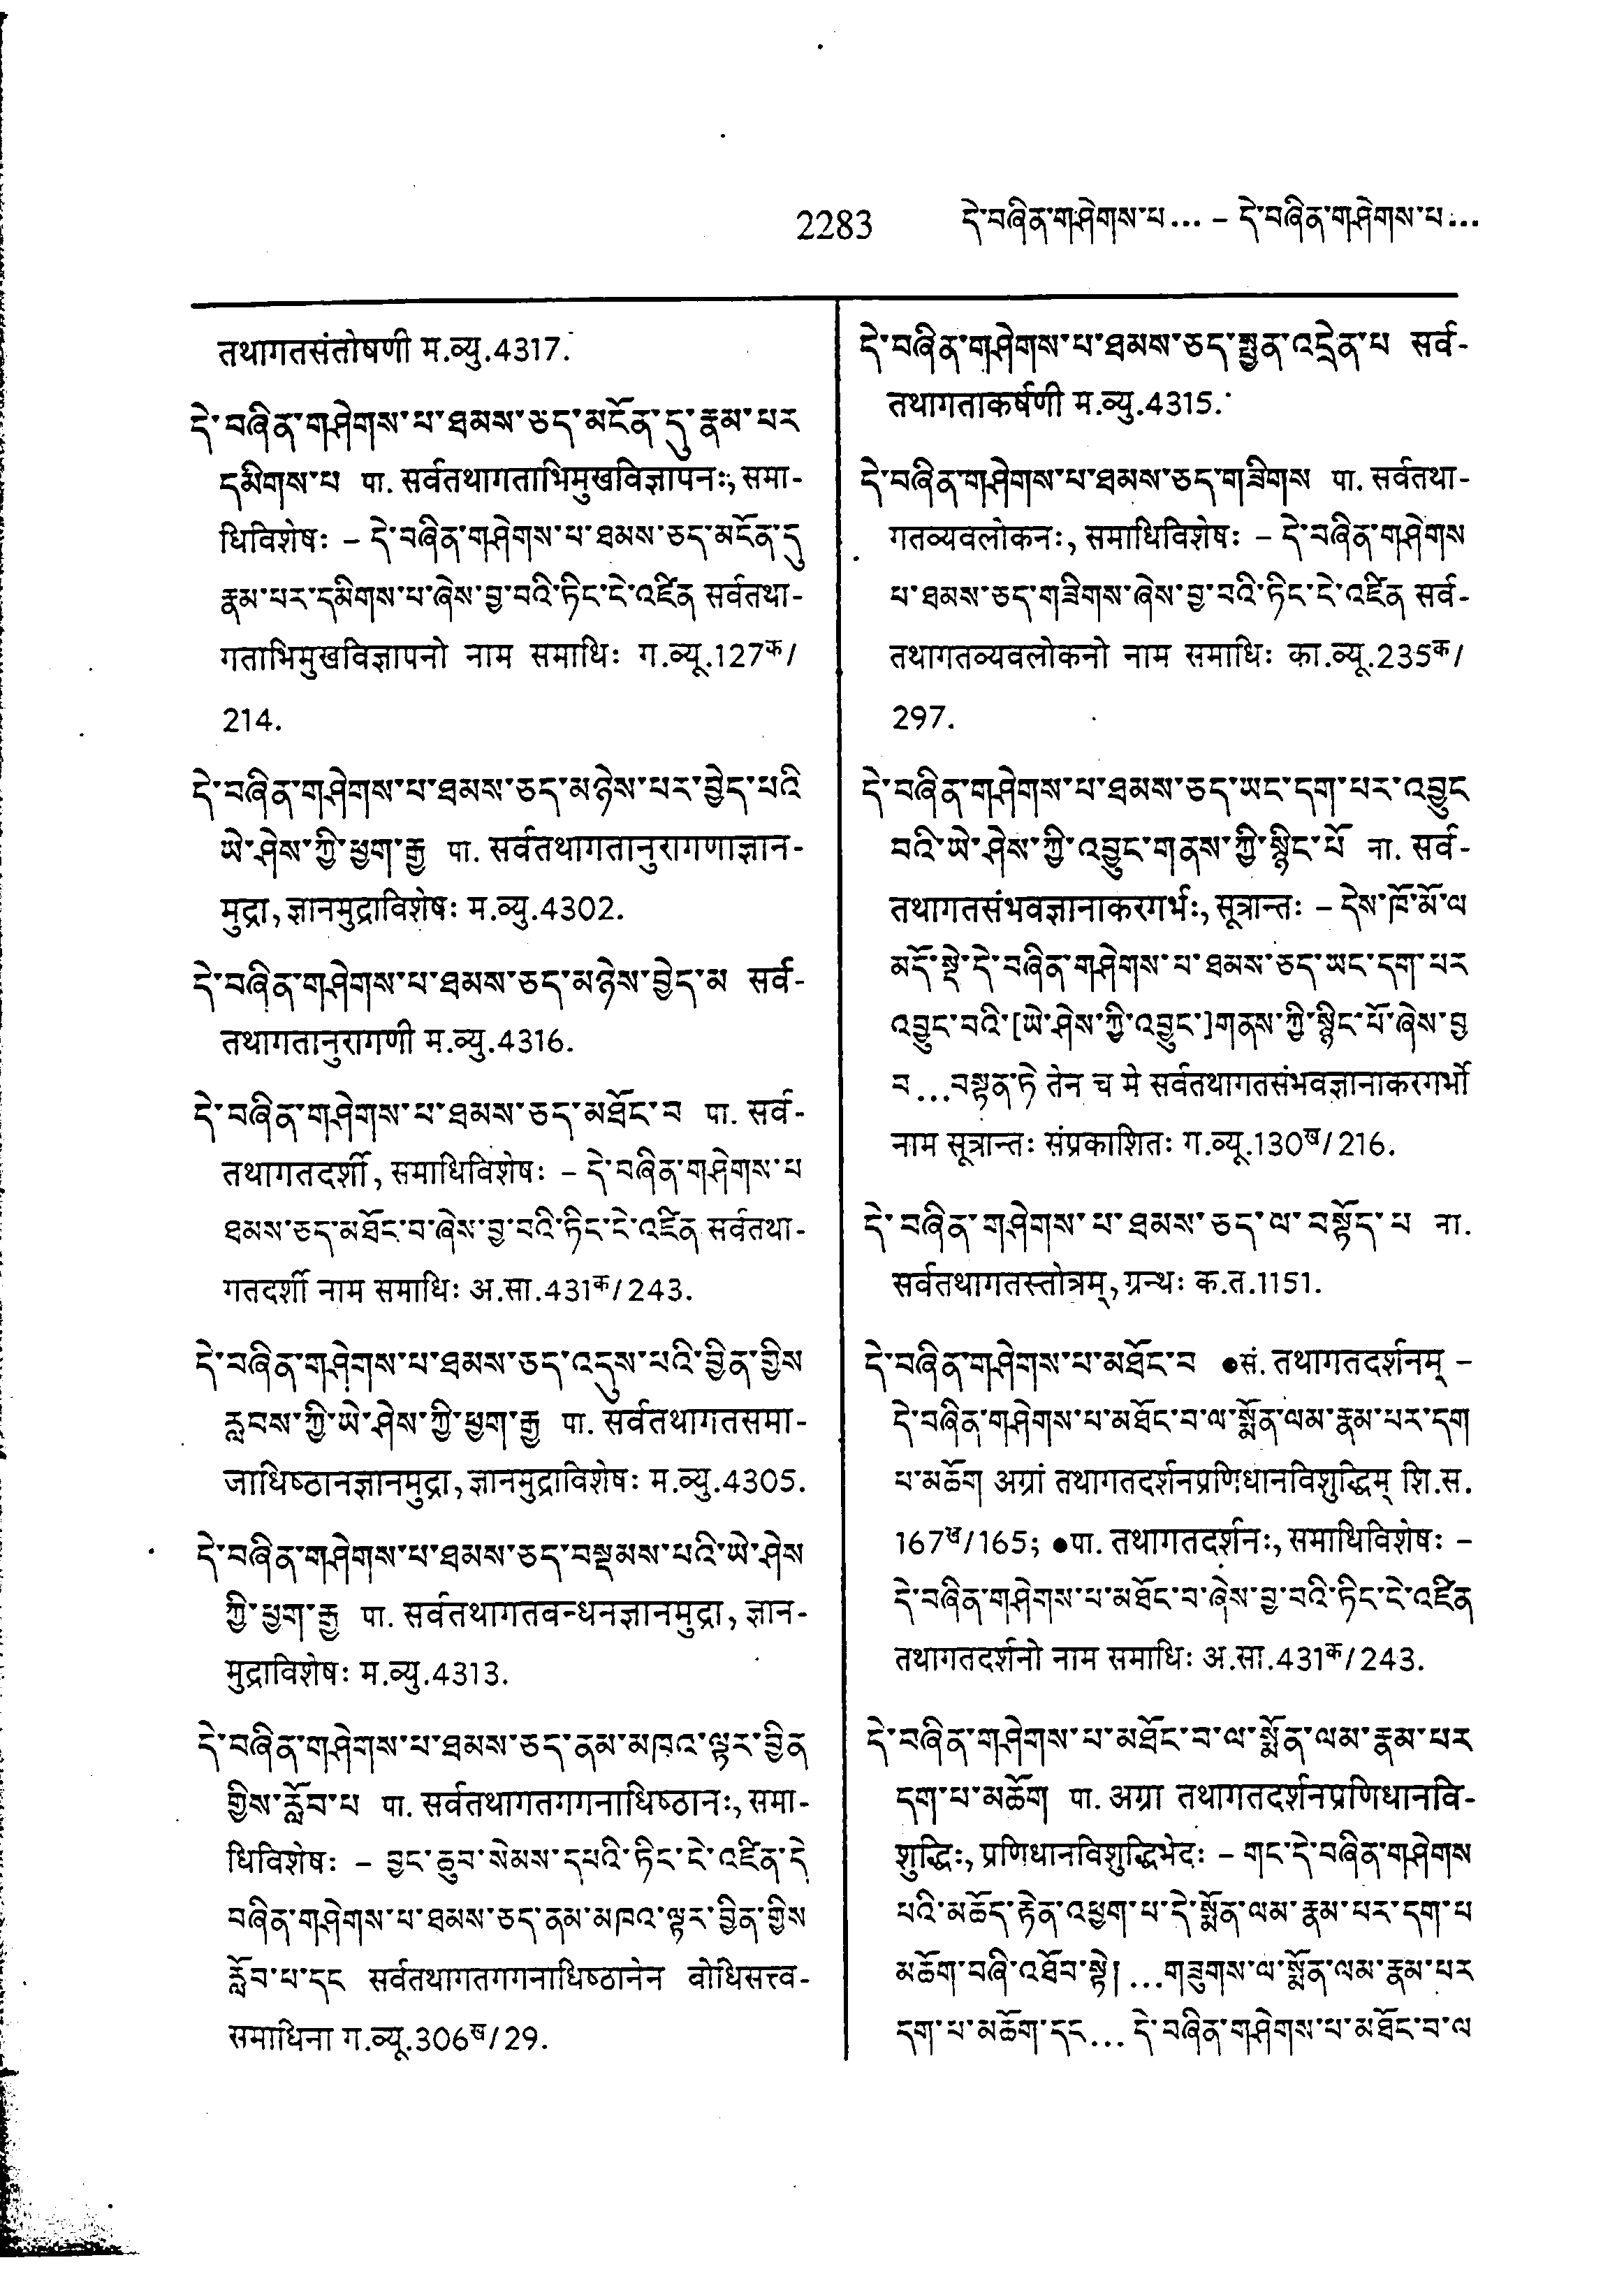 2283 དེ་བཞིན་གཤེགས་པ... – དེ་བཞིན་གཤེགས་པ...
तथागतसंतोषणी म.व्यु.4317.
དེ་བཞིན་གཤེགས་པ་ཐམས་ཅད་མངོན་དུ་རྣམ་པར
དམིགས་པ पा. सर्वतथागताभिमुखविज्ञापनः, समा-
धिविशेषः – དེ་བཞིན་གཤེགས་པ་ཐམས་ཅད་མངོན་དུ
རྣམ་པར་དམིགས་པ་ཞེས་བྱ་བའི་ཏིང་ངེ་འཛིན सर्वतथा-
गताभिमुखविज्ञापनो नाम समाधिः ग.व्यू.127क/
214.
དེ་བཞིན་གཤེགས་པ་ཐམས་ཅད་མཉེས་པར་བྱེད་པའི
ཡེ་ཤེས་ཀྱི་ཕྱག་རྒྱ पा. सर्वतथागतानुरागणाज्ञान-
मुद्रा, ज्ञानमुद्राविशेषः म.व्यु.4302.
དེ་བཞིན་གཤེགས་པ་ཐམས་ཅད་མཉེས་བྱེད་མ सर्व-
तथागतानुरागणी म.व्यु.4316.
དེ་བཞིན་གཤེགས་པ་ཐམས་ཅད་མཐོང་བ पा. सर्व-
तथागतदर्शी, समाधिविशेषः – དེ་བཞིན་གཤེགས་པ
ཐམས་ཅད་མཐོང་བ་ཞེས་བྱ་བའི་ཏིང་ངེ་འཛིན सर्वतथा-
गतदर्शी नाम समाधिः अ.सा.431क/243.
དེ་བཞིན་གཤེགས་པ་ཐམས་ཅད་འདུས་པའི་བྱིན་གྱིས
རླབས་ཀྱི་ཡེ་ཤེས་ཀྱི་ཕྱག་རྒྱ पा. सर्वतथागतसमा-
जाधिष्ठानज्ञानमुद्रा, ज्ञानमुद्राविशेषः म.व्यु.4305.
དེ་བཞིན་གཤེགས་པ་ཐམས་ཅད་བསྡམས་པའི་ཡེ་ཤེས
ཀྱི་ཕྱག་རྒྱ पा. सर्वतथागतबन्धनज्ञानमुद्रा, ज्ञान-
मुद्राविशेषः म.व्यु.4313.
དེ་བཞིན་གཤེགས་པ་ཐམས་ཅད་ནམ་མཁའ་ལྟར་བྱིན
གྱིས་རློབ་པ पा. सर्वतथागतगगनाधिष्ठानः, समा-
धिविशेषः – བྱང་ཆུབ་སེམས་དཔའི་ཏིང་ངེ་འཛིན་དེ
བཞིན་གཤེགས་པ་ཐམས་ཅད་ནམ་མཁའ་ལྟར་བྱིན་གྱིས
རློབ་པ་དང सर्वतथागतगगनाधिष्ठानेन बोधिसत्त्व-
समाधिना ग.व्यू.306ख/29.
དེ་བཞིན་གཤེགས་པ་ཐམས་ཅད་སྤྱན་འདྲེན་པ सर्व-
तथागताकर्षणी म.व्यु.4315.
དེ་བཞིན་གཤེགས་པ་ཐམས་ཅད་གཟིགས पा. सर्वतथा-
गतव्यवलोकनः, समाधिविशेषः – དེ་བཞིན་གཤེགས
པ་ཐམས་ཅད་གཟིགས་ཞེས་བྱ་བའི་ཏིང་ངེ་འཛིན सर्व-
तथागतव्यवलोकनो नाम समाधिः का.व्यू.235क/
297.
དེ་བཞིན་གཤེགས་པ་ཐམས་ཅད་ཡང་དག་པར་འབྱུང
བའི་ཡེ་ཤེས་ཀྱི་འབྱུང་གནས་ཀྱི་སྙིང་པོ ना. सर्व-
तथागतसंभवज्ञानाकरगर्भः, सूत्रान्तः – དེས་ཁོ་མོ་ལ
མདོ་སྡེ་དེ་བཞིན་གཤེགས་པ་ཐམས་ཅད་ཡང་དག་པར
འབྱུང་བའི་[ཡེ་ཤེས་ཀྱི་འབྱུང་]གནས་ཀྱི་སྙིང་པོ་ཞེས་བྱ
བ...བསྟན་ཏེ तेन च मे सर्वतथागतसंभवज्ञानाकरगर्भो
नाम सूत्रान्तः संप्रकाशितः ग.व्यू.130ख/216.
དེ་བཞིན་གཤེགས་པ་ཐམས་ཅད་ལ་བསྟོད་པ ना.
सर्वतथागतस्तोत्रम्, ग्रन्थः क.त.1151.
དེ་བཞིན་གཤེགས་པ་མཐོང་བ ●सं. तथागतदर्शनम् –
དེ་བཞིན་གཤེགས་པ་མཐོང་བ་ལ་སྨོན་ལམ་རྣམ་པར་དག
པ་མཆོག अग्रां तथागतदर्शनप्रणिधानविशुद्धिम् शि.स.
167ख/165; ●पा. तथागतदर्शनः, समाधिविशेषः –
དེ་བཞིན་གཤེགས་པ་མཐོང་བ་ཞེས་བྱ་བའི་ཏིང་ངེ་འཛིན
तथागतदर्शनो नाम समाधिः अ.सा.431क/243.
དེ་བཞིན་གཤེགས་པ་མཐོང་བ་ལ་སྨོན་ལམ་རྣམ་པར
དག་པ་མཆོག पा. अग्रा तथागतदर्शनप्रणिधानवि-
शुद्धिः, प्रणिधानविशुद्धिभेदः – གང་དེ་བཞིན་གཤེགས
པའི་མཆོད་རྟེན་འཕྱག་པ་དེ་སྨོན་ལམ་རྣམ་པར་དག་པ
མཆོག་བཞི་འཐོབ་སྟེ། ...གཟུགས་ལ་སྨོན་ལམ་རྣམ་པར
དག་པ་མཆོག་དང... དེ་བཞིན་གཤེགས་པ་མཐོང་བ་ལ